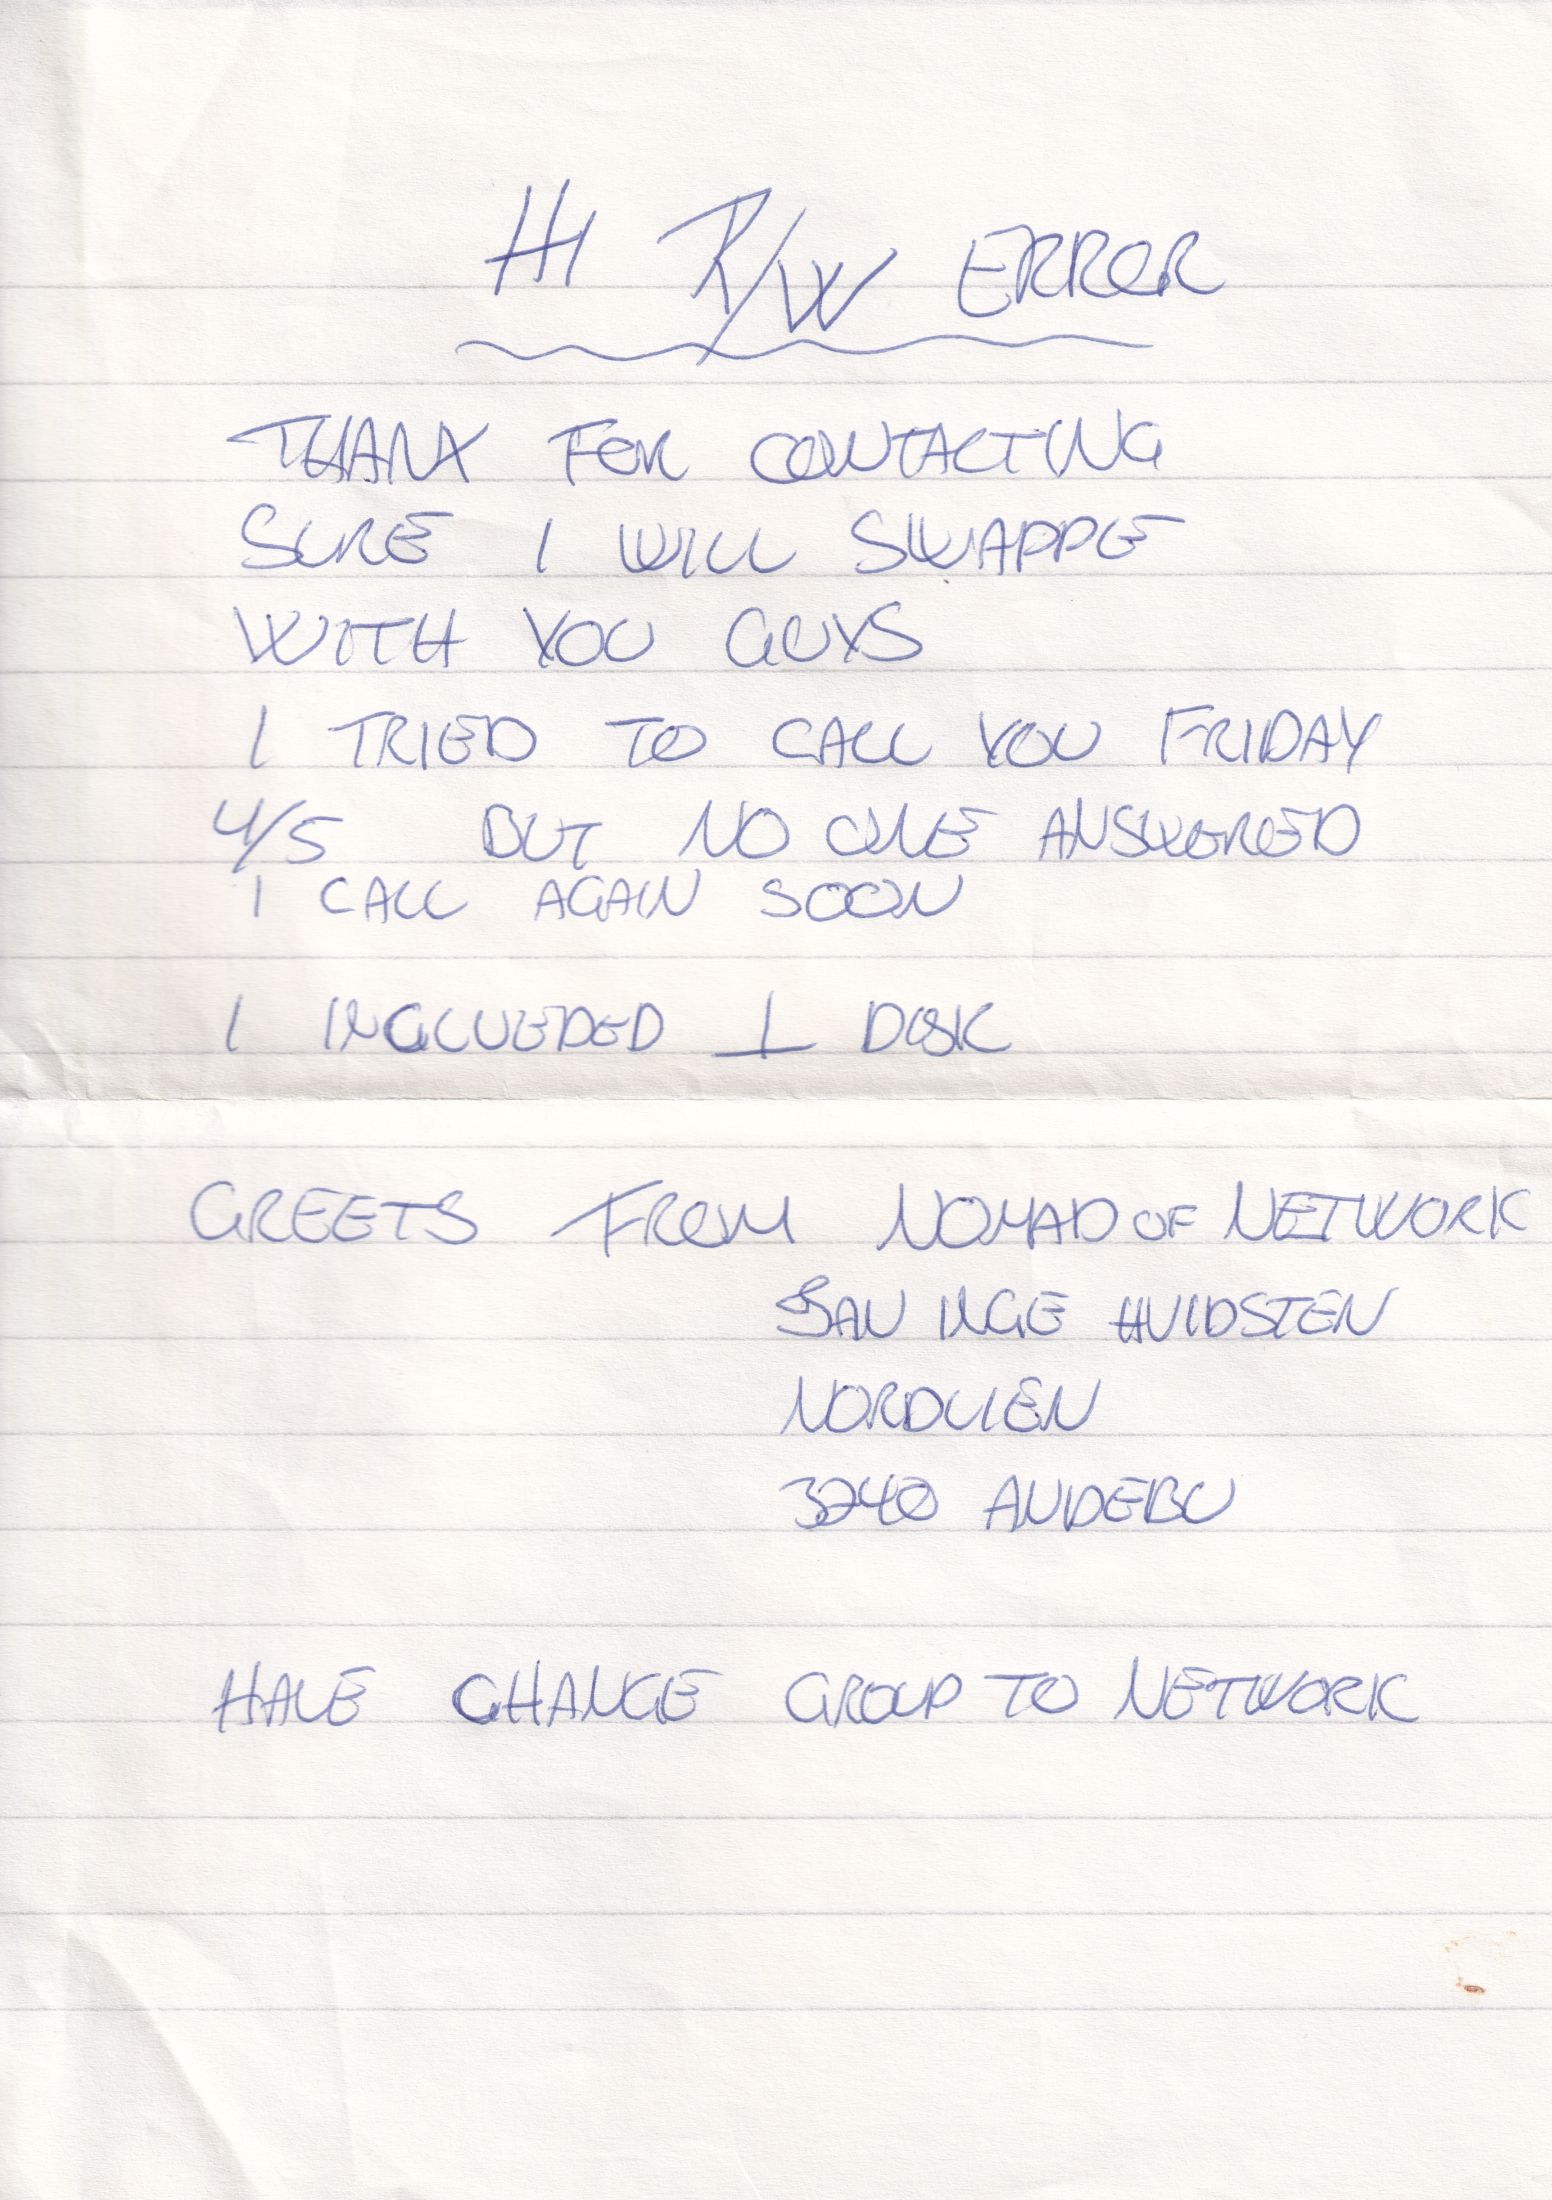 HI R/W ERROR
THANX FOR CONTACTING
SURE I WILL SWAPPE
WITH YOU GUYS
I TRIED TO CALL YOU FRIDAY
4/5 BUT NO ONE ANSWERED
I CALL AGAIN SOON
I INCLUEDED 1 DISK
GREETS FROM NOMAD OF NETWORK
JAN INGE HVIDSTEN
NORDLIEN
3240 ANDEBU
HAVE CHANGE GROUP TO NETWORK